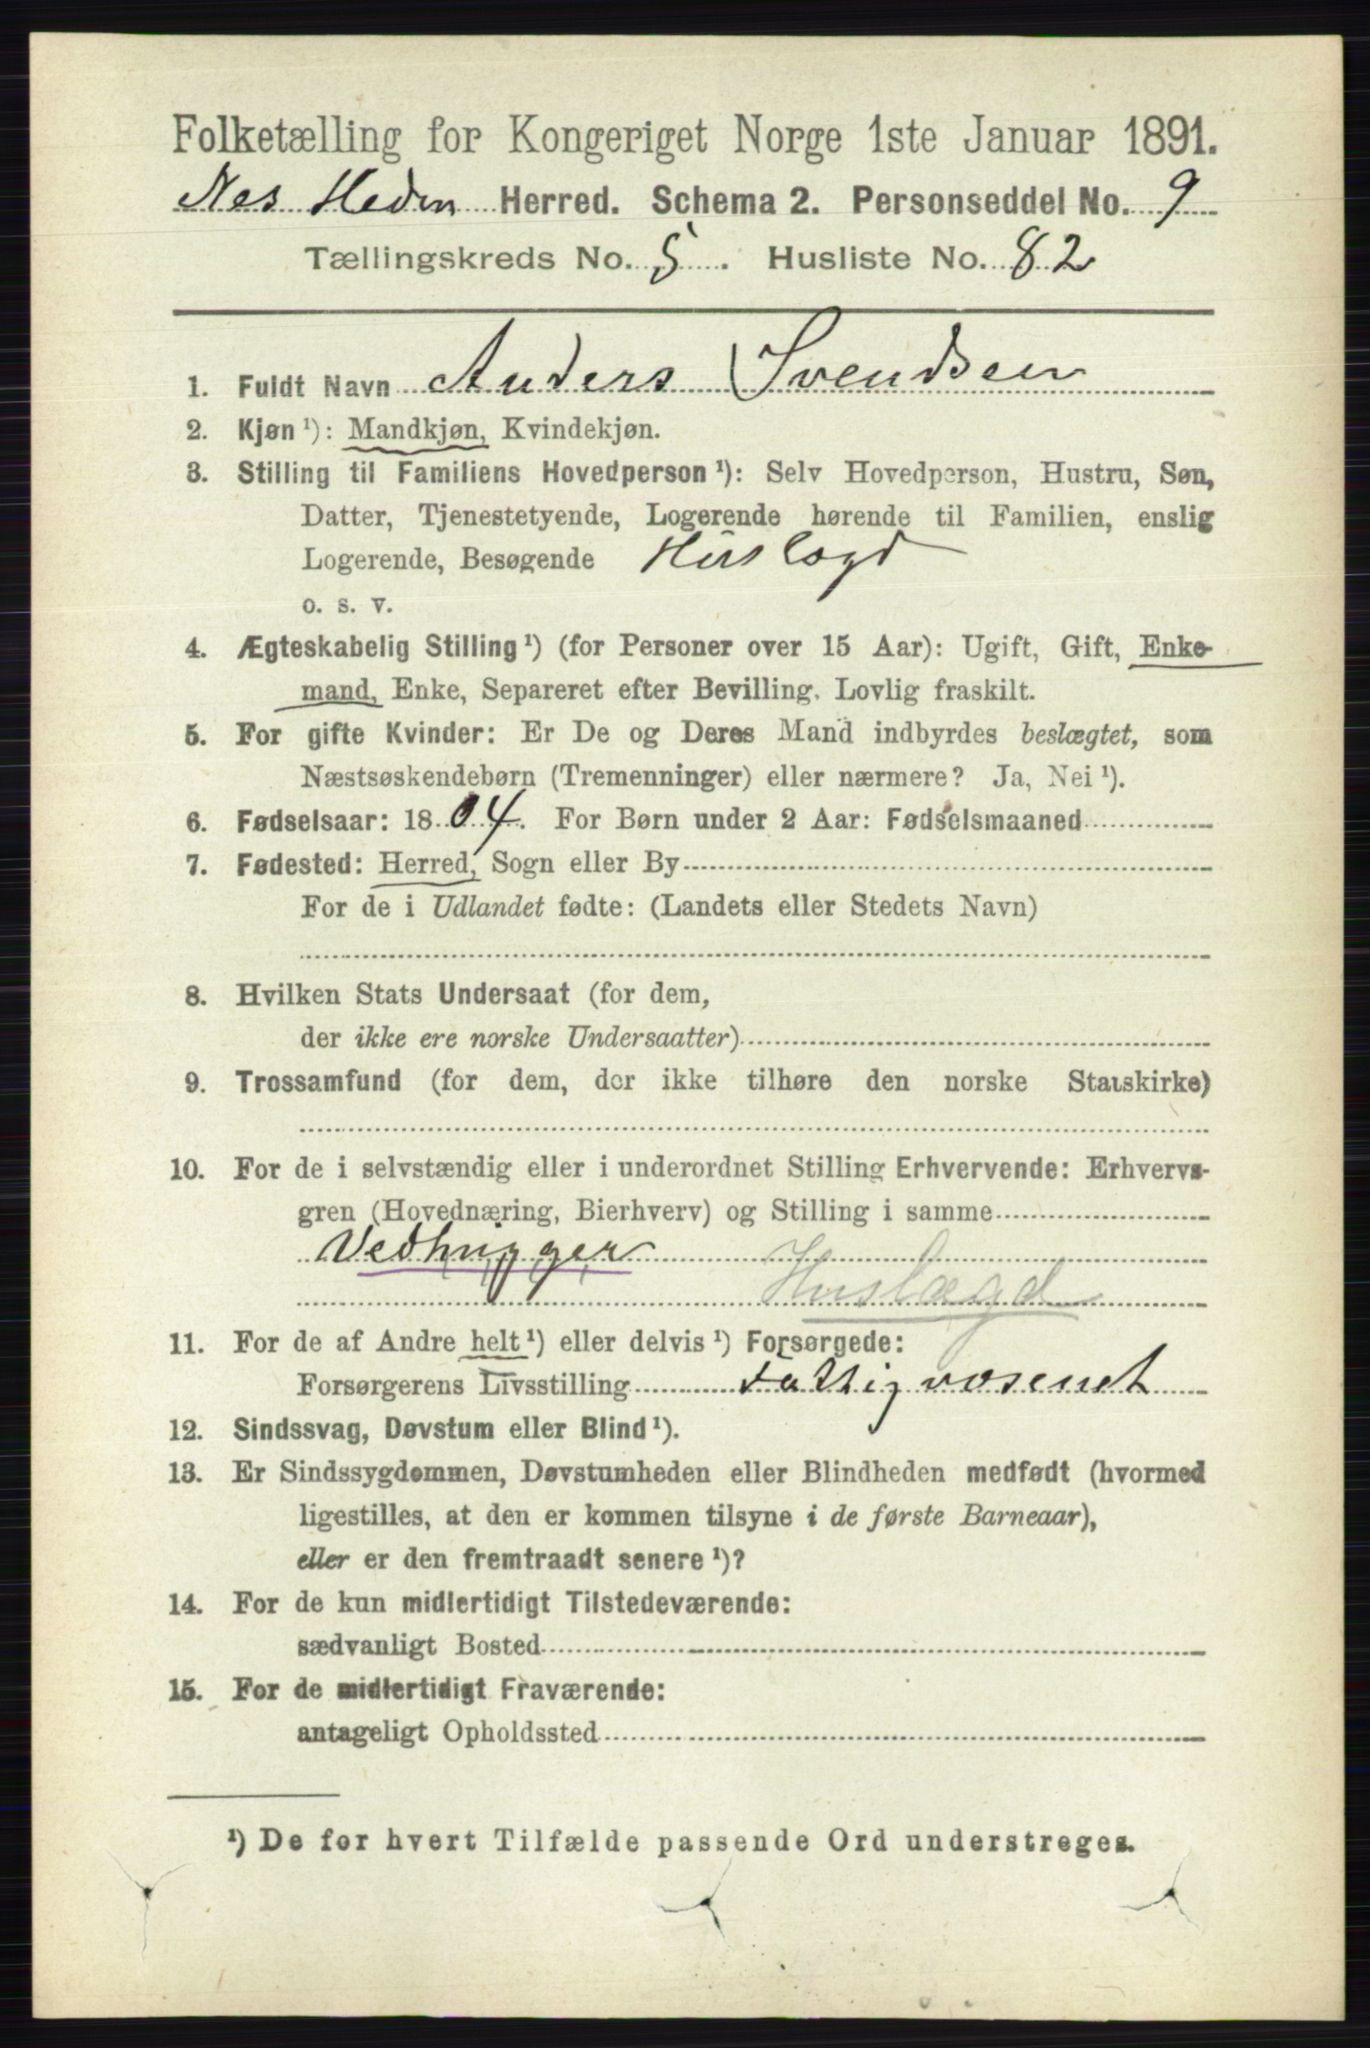 Folketælling for Kongeriget Norge 1ste Januar 1891.
Nes Hedm Herred. Schema 2. Personseddel No. 9
Tællingskreds No. 5. Husliste No. 82
1. Fuldt Navn Anders Svendsen
2. Kjøn ¹): Mandkjøn, Kvindekjøn.
3. Stilling til Familiens Hovedperson ¹): Selv Hovedperson, Hustru, Søn,
Datter, Tjenestetyende, Logerende hørende til Familien, enslig
Logerende, Besøgende Huslægd
o. s. v.
4. Ægteskabelig Stilling ¹) (for Personer over 15 Aar): Ugift, Gift, Enke-
mand, Enke, Separeret efter Bevilling. Lovlig fraskilt.
5. For gifte Kvinder: Er De og Deres Mand indbyrdes beslægtet, som
Næstsøskendebørn (Tremenninger) eller nærmere? Ja, Nei ¹).
6. Fødselsaar: 1804. For Børn under 2 Aar: Fødselsmaaned
7. Fødested: Herred, Sogn eller By
For de i Udlandet fødte: (Landets eller Stedets Navn)
8. Hvilken Stats Undersaat (for dem,
der ikke ere norske Undersaatter)
9. Trossamfund (for dem, der ikke tilhøre den norske Statskirke)
10. For de i selvstændig eller i underordnet Stilling Erhvervende: Erhvervs-
gren (Hovednæring, Bierhverv) og Stilling i samme
Vedhugger
Huslægd
11. For de af Andre helt ¹) eller delvis ¹) Forsørgede:
Forsørgerens Livsstilling Fattigvæsenet
12. Sindssvag, Døvstum eller Blind ¹).
13. Er Sindssygdommen, Døvstumheden eller Blindheden medfødt (hvormed
ligestilles, at den er kommen tilsyne i de første Barneaar),
eller er den fremtraadt senere ¹)?
14. For de kun midlertidigt Tilstedeværende:
sædvanligt Bosted
15. For de midlertidigt Fraværende:
antageligt Opholdssted
¹) De for hvert Tilfælde passende Ord understreges.